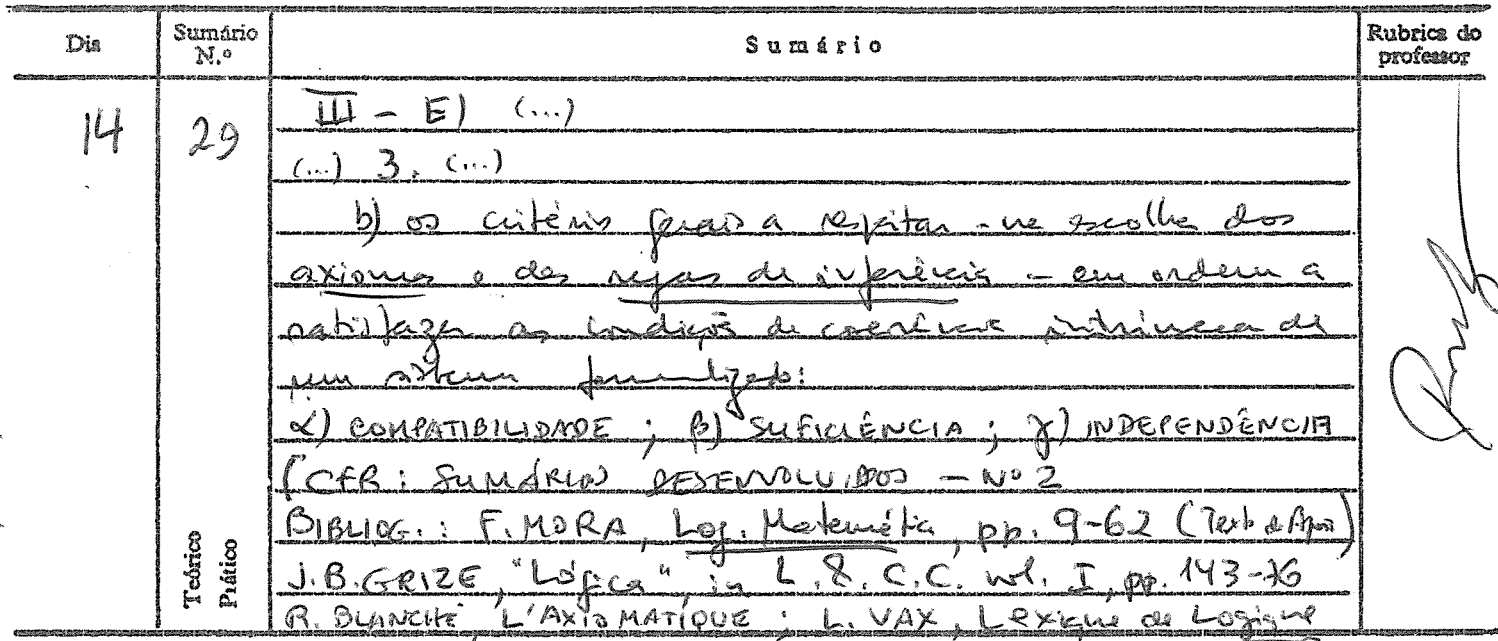 Dia Sumário N.º Sumário Rubrica do professor
14 29 III - E) (...)
(...) 3. (...)
b) os critérios gerais a respeitar - na escolha dos
axiomas e das regras de inferência - em ordem a
satisfazer as condições de coerência intrínseca de
um sistema formalizado:
α) COMPATIBILIDADE ; β) SUFICIÊNCIA ; γ) INDEPENDÊNCIA
(CFR: SUMÁRIOS DESENVOLVIDOS - Nº 2
BIBLIOG.: F. MORA, Log. Matemática, pp. 9-62 (Texto de Apoio)
J.B. GRIZE, "Lógica", in L. & C.C. vol. I, pp. 143-76
R. BLANCHÉ, L'AXIOMATIQUE ; L. VAX, Lexique de Logique
Teórico
Prático